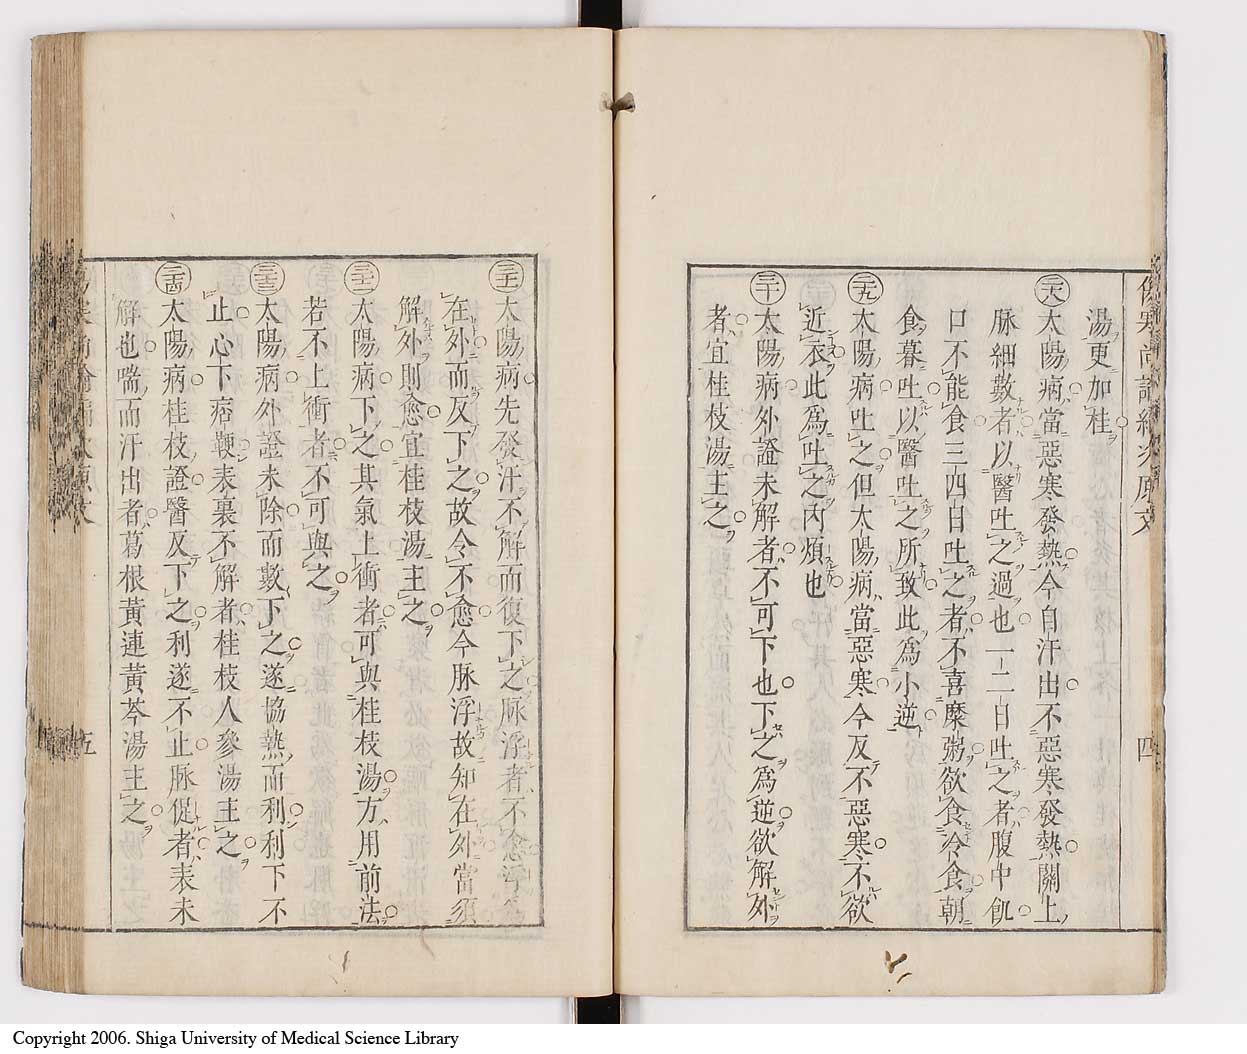 傷寒尚論編次原文
四
湯更加桂
二十八
太陽病當惡寒發熱今自汗出不惡寒發熱關上
脉細數者以醫吐之過也一二日吐之者腹中飢
口不能食三四日吐之者不喜糜粥欲食冷食朝
食暮吐以醫吐之所致此為小逆
二十九
太陽病吐之但太陽病當惡寒今反不惡寒不欲
近衣此為吐之內煩也
三十
太陽病外證未解者不可下也下之為逆欲解外
者宜桂枝湯主之
三十一
太陽病先發汗不解而復下之脉浮者不愈浮為
在外而反下之故令不愈今脉浮故知在外當須
解外則愈宜桂枝湯主之
三十二
太陽病下之其氣上衝者可與桂枝湯方用前法
若不上衝者不可與之
三十三
太陽病外證未除而數下之遂協熱而利利下不
止心下痞鞕表裏不解者桂枝人參湯主之
三十四
太陽病桂枝證醫反下之利遂不止脉促者表未
解也喘而汗出者葛根黃連黃芩湯主之
五
Copyright 2006. Shiga University of Medical Science Library